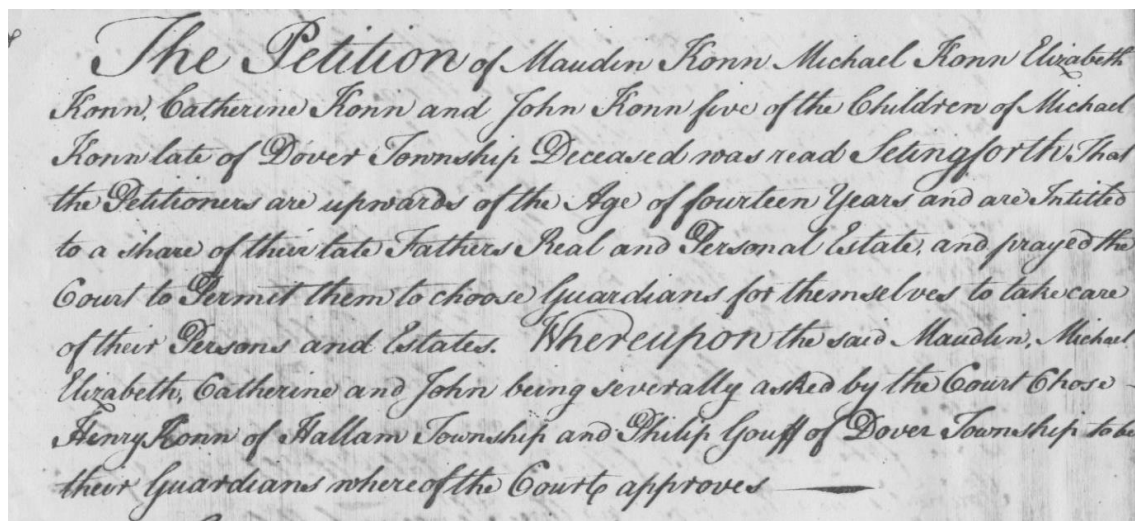 The Petition of Maudin Konn Michael Konn Elizabeth
Konn, Catherine Konn and John Konn five of the Children of Michael
Konn late of Dover Township Deceased was read Setingforth That
the Petitioners are upwards of the Age of fourteen Years and are Intitled
to a share of their late Fathers Real and Personal Estate, and prayed the
Court to Permit them to choose Guardians for themselves to take care
of their Persons and Estates. Whereupon the said Maudlin, Michael
Elizabeth, Catherine and John being severally asked by the Court Chose
Henry Konn of Hallam Township and Philip Gouff of Dover Township to be
their Guardians whereof the Court approves